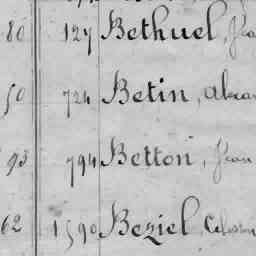 80 127 Bethuel, Jean
50 724 Betin, Abra
93 794 Betton, Jean
62 1590 Beziel, Celestin